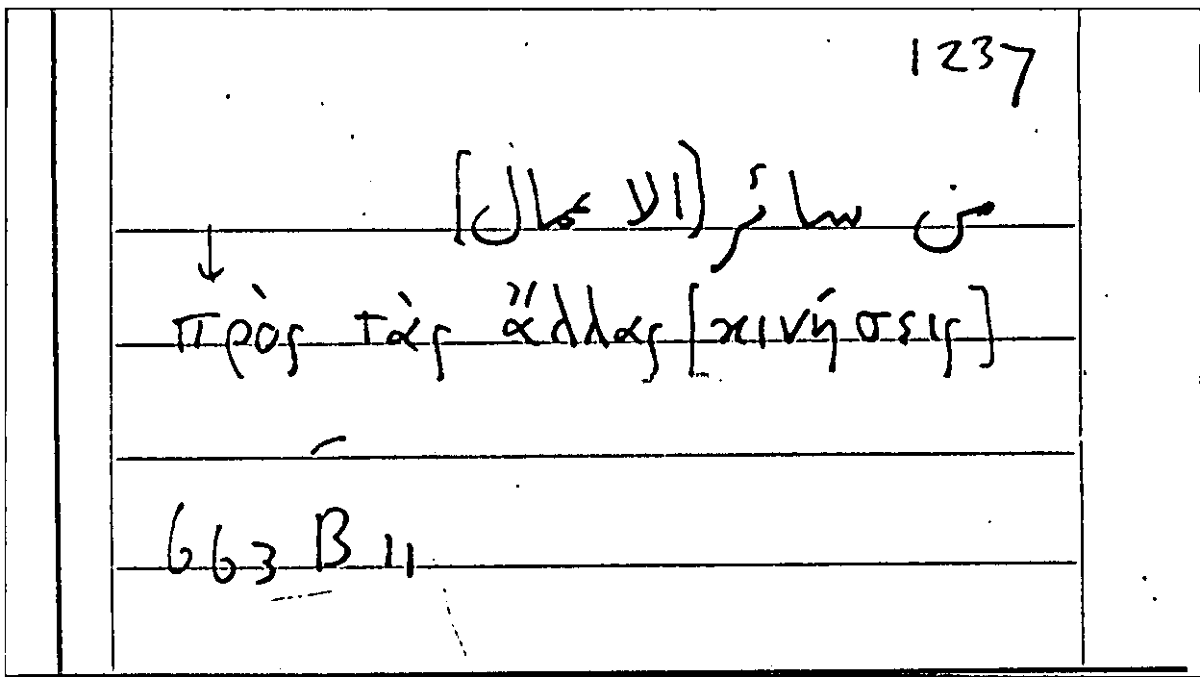 1237
من سائر [الاعمال]
↓
πρὸς τὰς ἄλλας [κινήσεις]
663 B 11